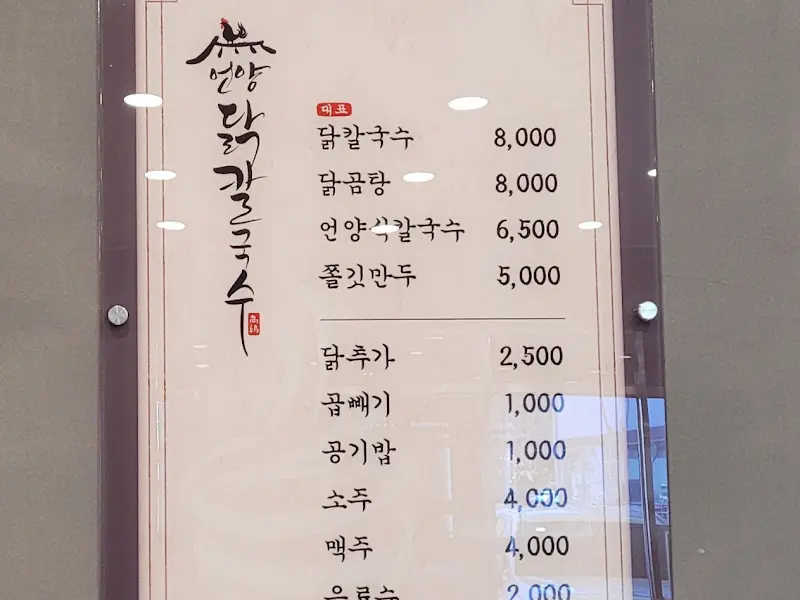 언양
닭칼국수
대표
닭칼국수 8,000
닭곰탕 8,000
언양식칼국수 6,500
쫄깃만두 5,000
닭추가 2,500
곱빼기 1,000
공기밥 1,000
소주 4,000
맥주 4,000
음료수 2,000